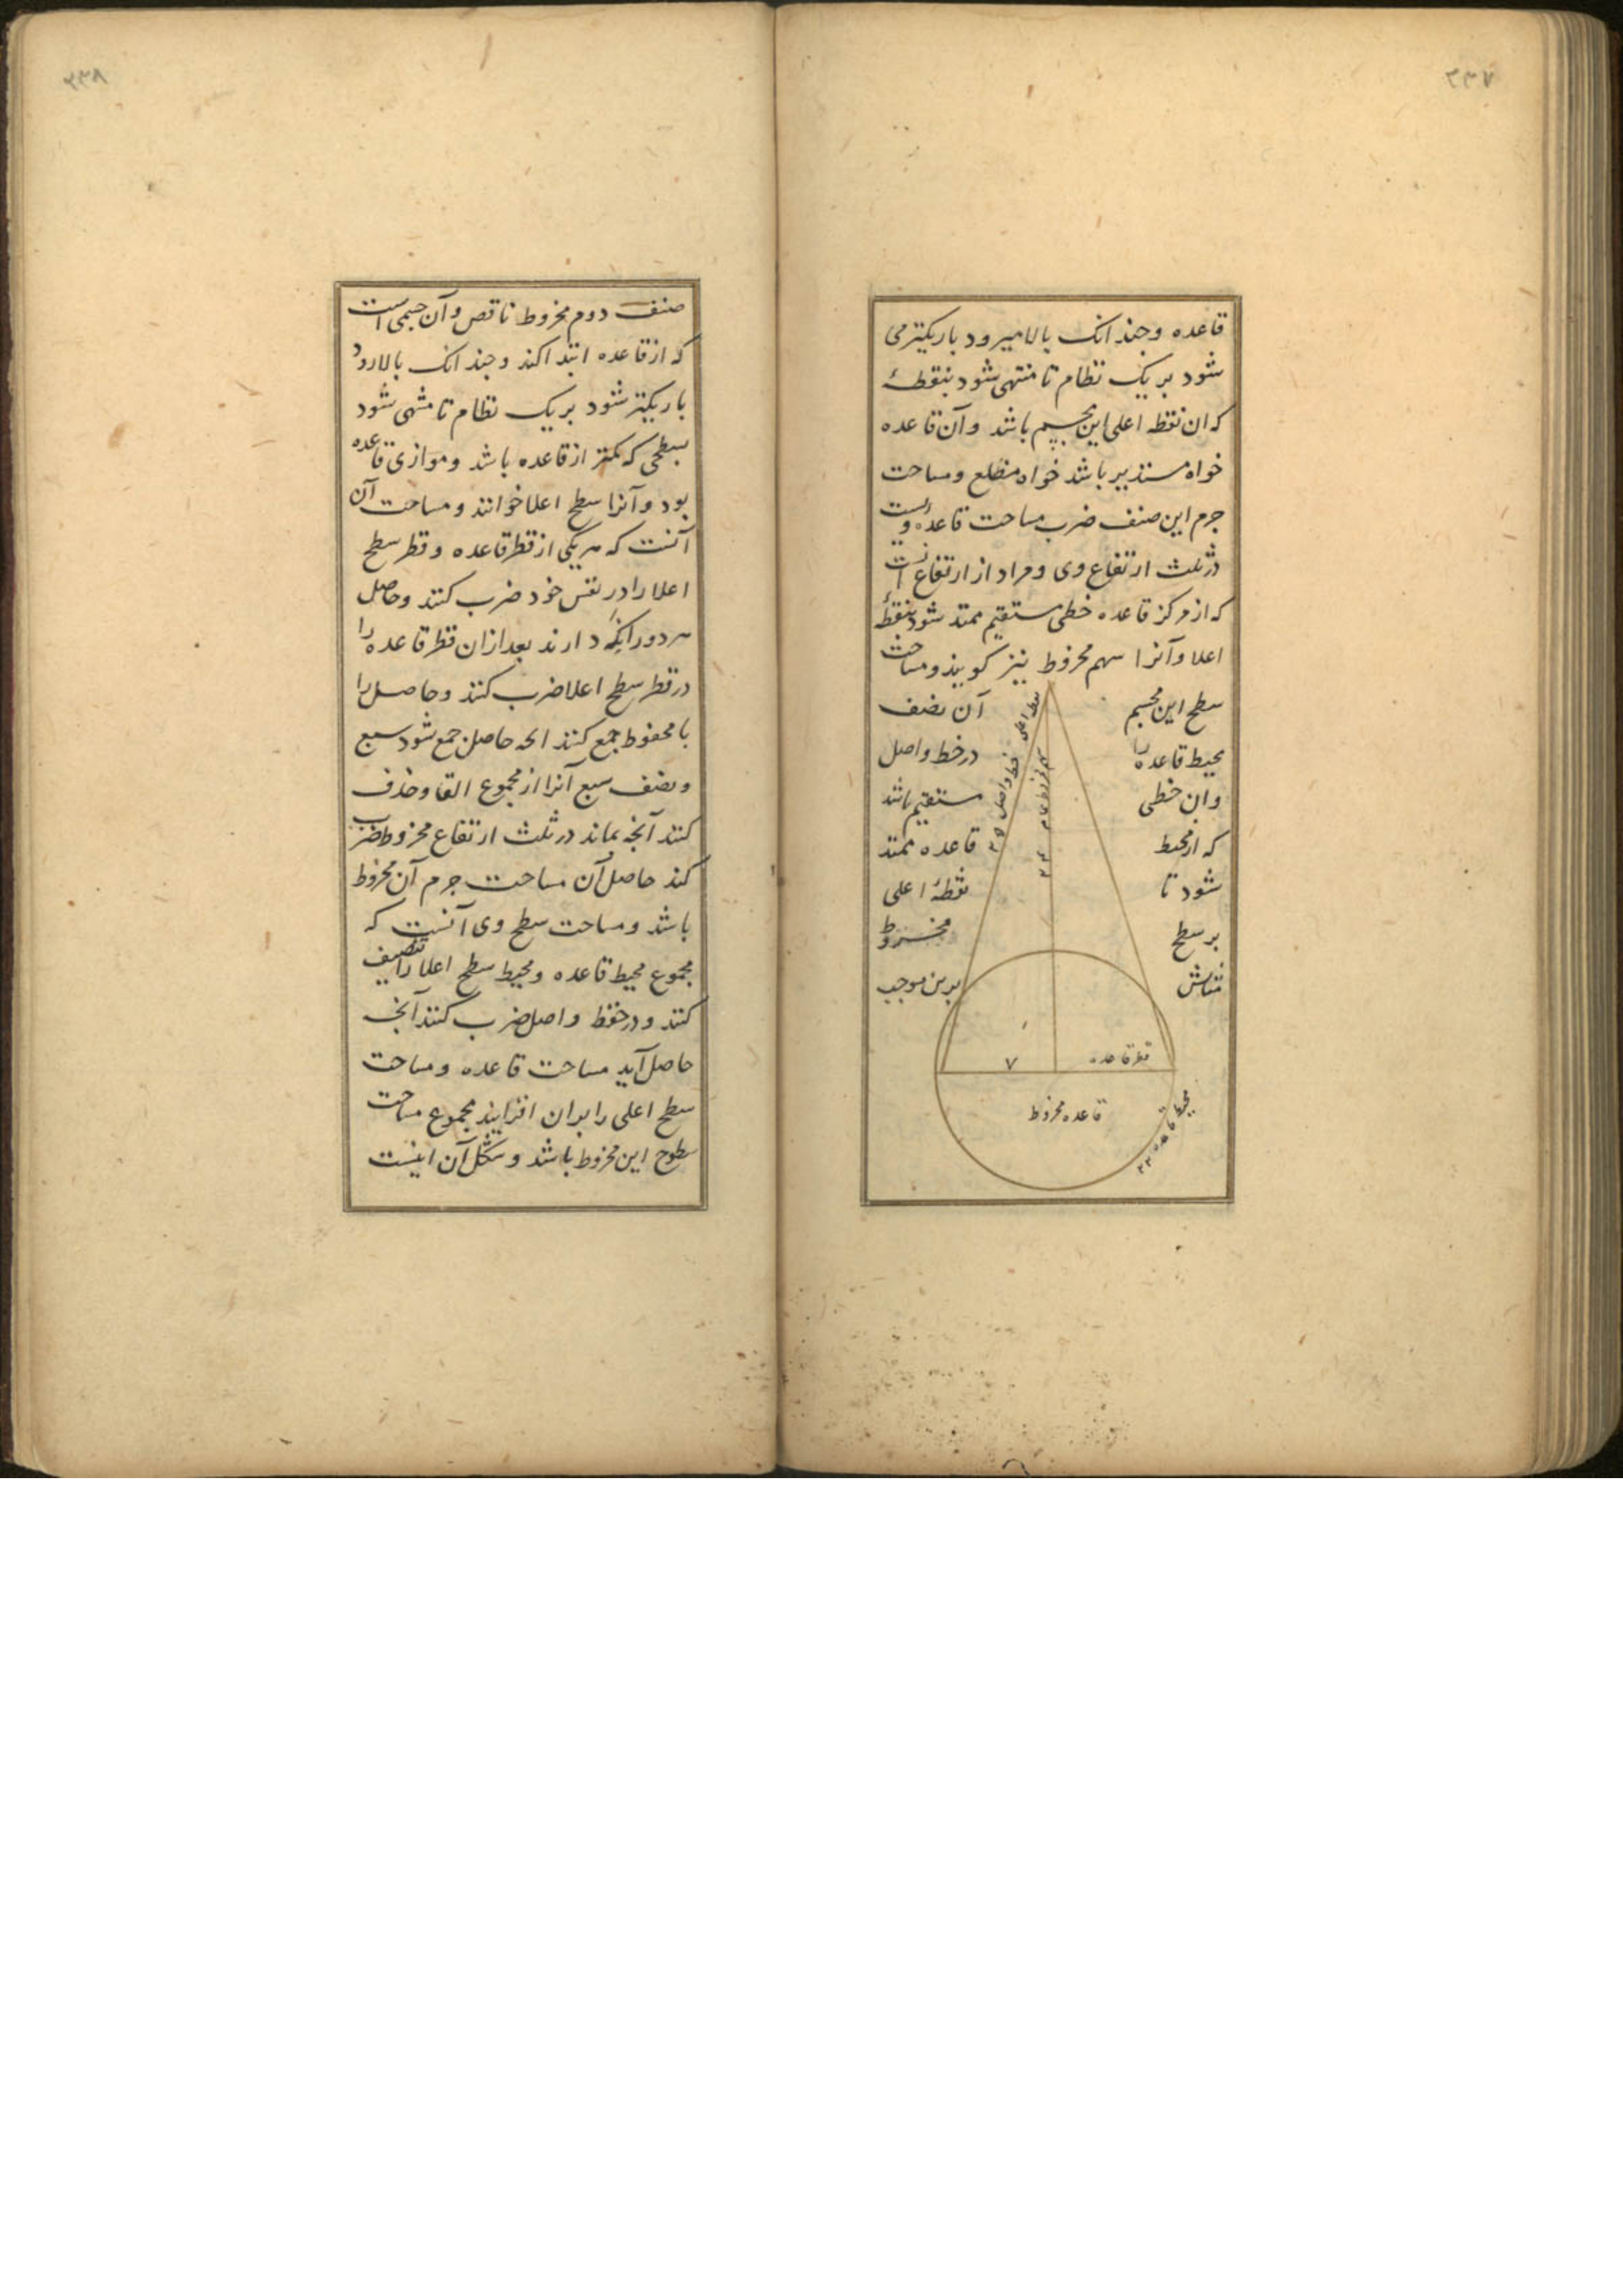 ۳۳۷
قاعده وجند انک بالا میرود باریکترمی
شود بر یک نظام تا منتهی شود بنقطهٔ
که ان نقطه اعلی این مجسم باشد وآن قاعده
خواه مستدیر باشد خواه مضلع ومساحت
جرم این صنف ضرب مساحت قاعدهٔ ویست
در ثلث ارتفاع وی ومراد از ارتفاع آنست
که از مرکز قاعده خطی مستقیم ممتد شود بنقطهٔ
اعلا وآنرا سهم مخروط نیز کویند ومساحت
سطح این مجسم آن نصف
محیط قاعده را در خط واصل
وان خطی مستقیم باشد
که از محیط قاعده ممتد
شود تا نقطهٔ اعلی
بر سطح مخروط
مثالش برین موجب
نقطه اعلی
خط واصل ۲۵
سهم مخروط تام ۲۴
قطر قاعده ۷
قاعده مخروط
محیط قاعده ۲۲
۳۳۸
صنف دوم مخروط ناقص وآن جسمی است
که از قاعده ابتدا کند وجند انک بالا رود
باریکتر شود بر یک نظام تا منتهی شود
بسطحی که کمتر از قاعده باشد وموازی قاعده
بود وآنرا سطح اعلا خوانند ومساحت آن
آنست که هر یکی از قطر قاعده وقطر سطح
اعلا را در نفس خود ضرب کنند وحاصل
هر دو را نکه دارند بعد از ان قطر قاعده را
در قطر سطح اعلا ضرب کنند وحاصل را
با محفوظ جمع کنند انجه حاصل جمع شود سبع
ونصف سبع آنرا از مجموع القا وحذف
کنند آنجه بماند در ثلث ارتفاع مخروط ضرب
کنند حاصل آن مساحت جرم آن مخروط
باشد ومساحت سطح وی آنست که
مجموع محیط قاعده ومحیط سطح اعلا را تنصیف
کنند ودر خط واصل ضرب کنند آنجه
حاصل آید مساحت قاعده ومساحت
سطح اعلی را بران افزایند مجموع مساحت
سطوح این مخروط باشد وشکل آن اینست